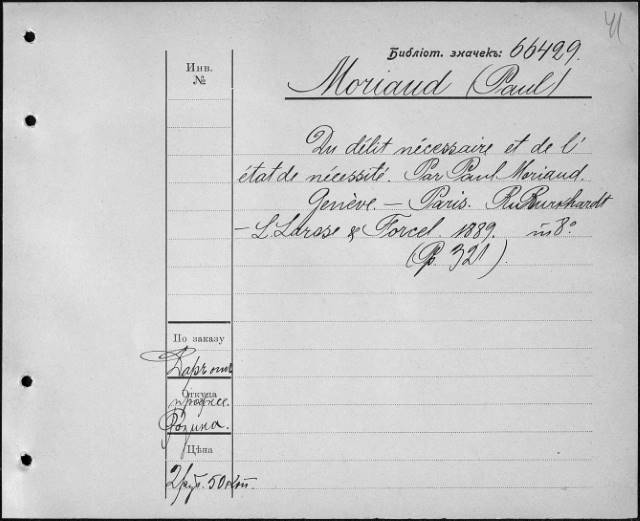 41
Библіот. значекъ: 66429.
Инв.
№
Moriaud (Paul)
Du délit nécessaire et de l'
état de nécessité. Par Paul Moriaud.
Genève. — Paris. R. Burkhardt
— L. Larose & Forcel. 1889. in 8°
(P. 321).
По заказу
Даръ отъ
Откуда
профес.
Цѣна
2 руб. 50 коп.